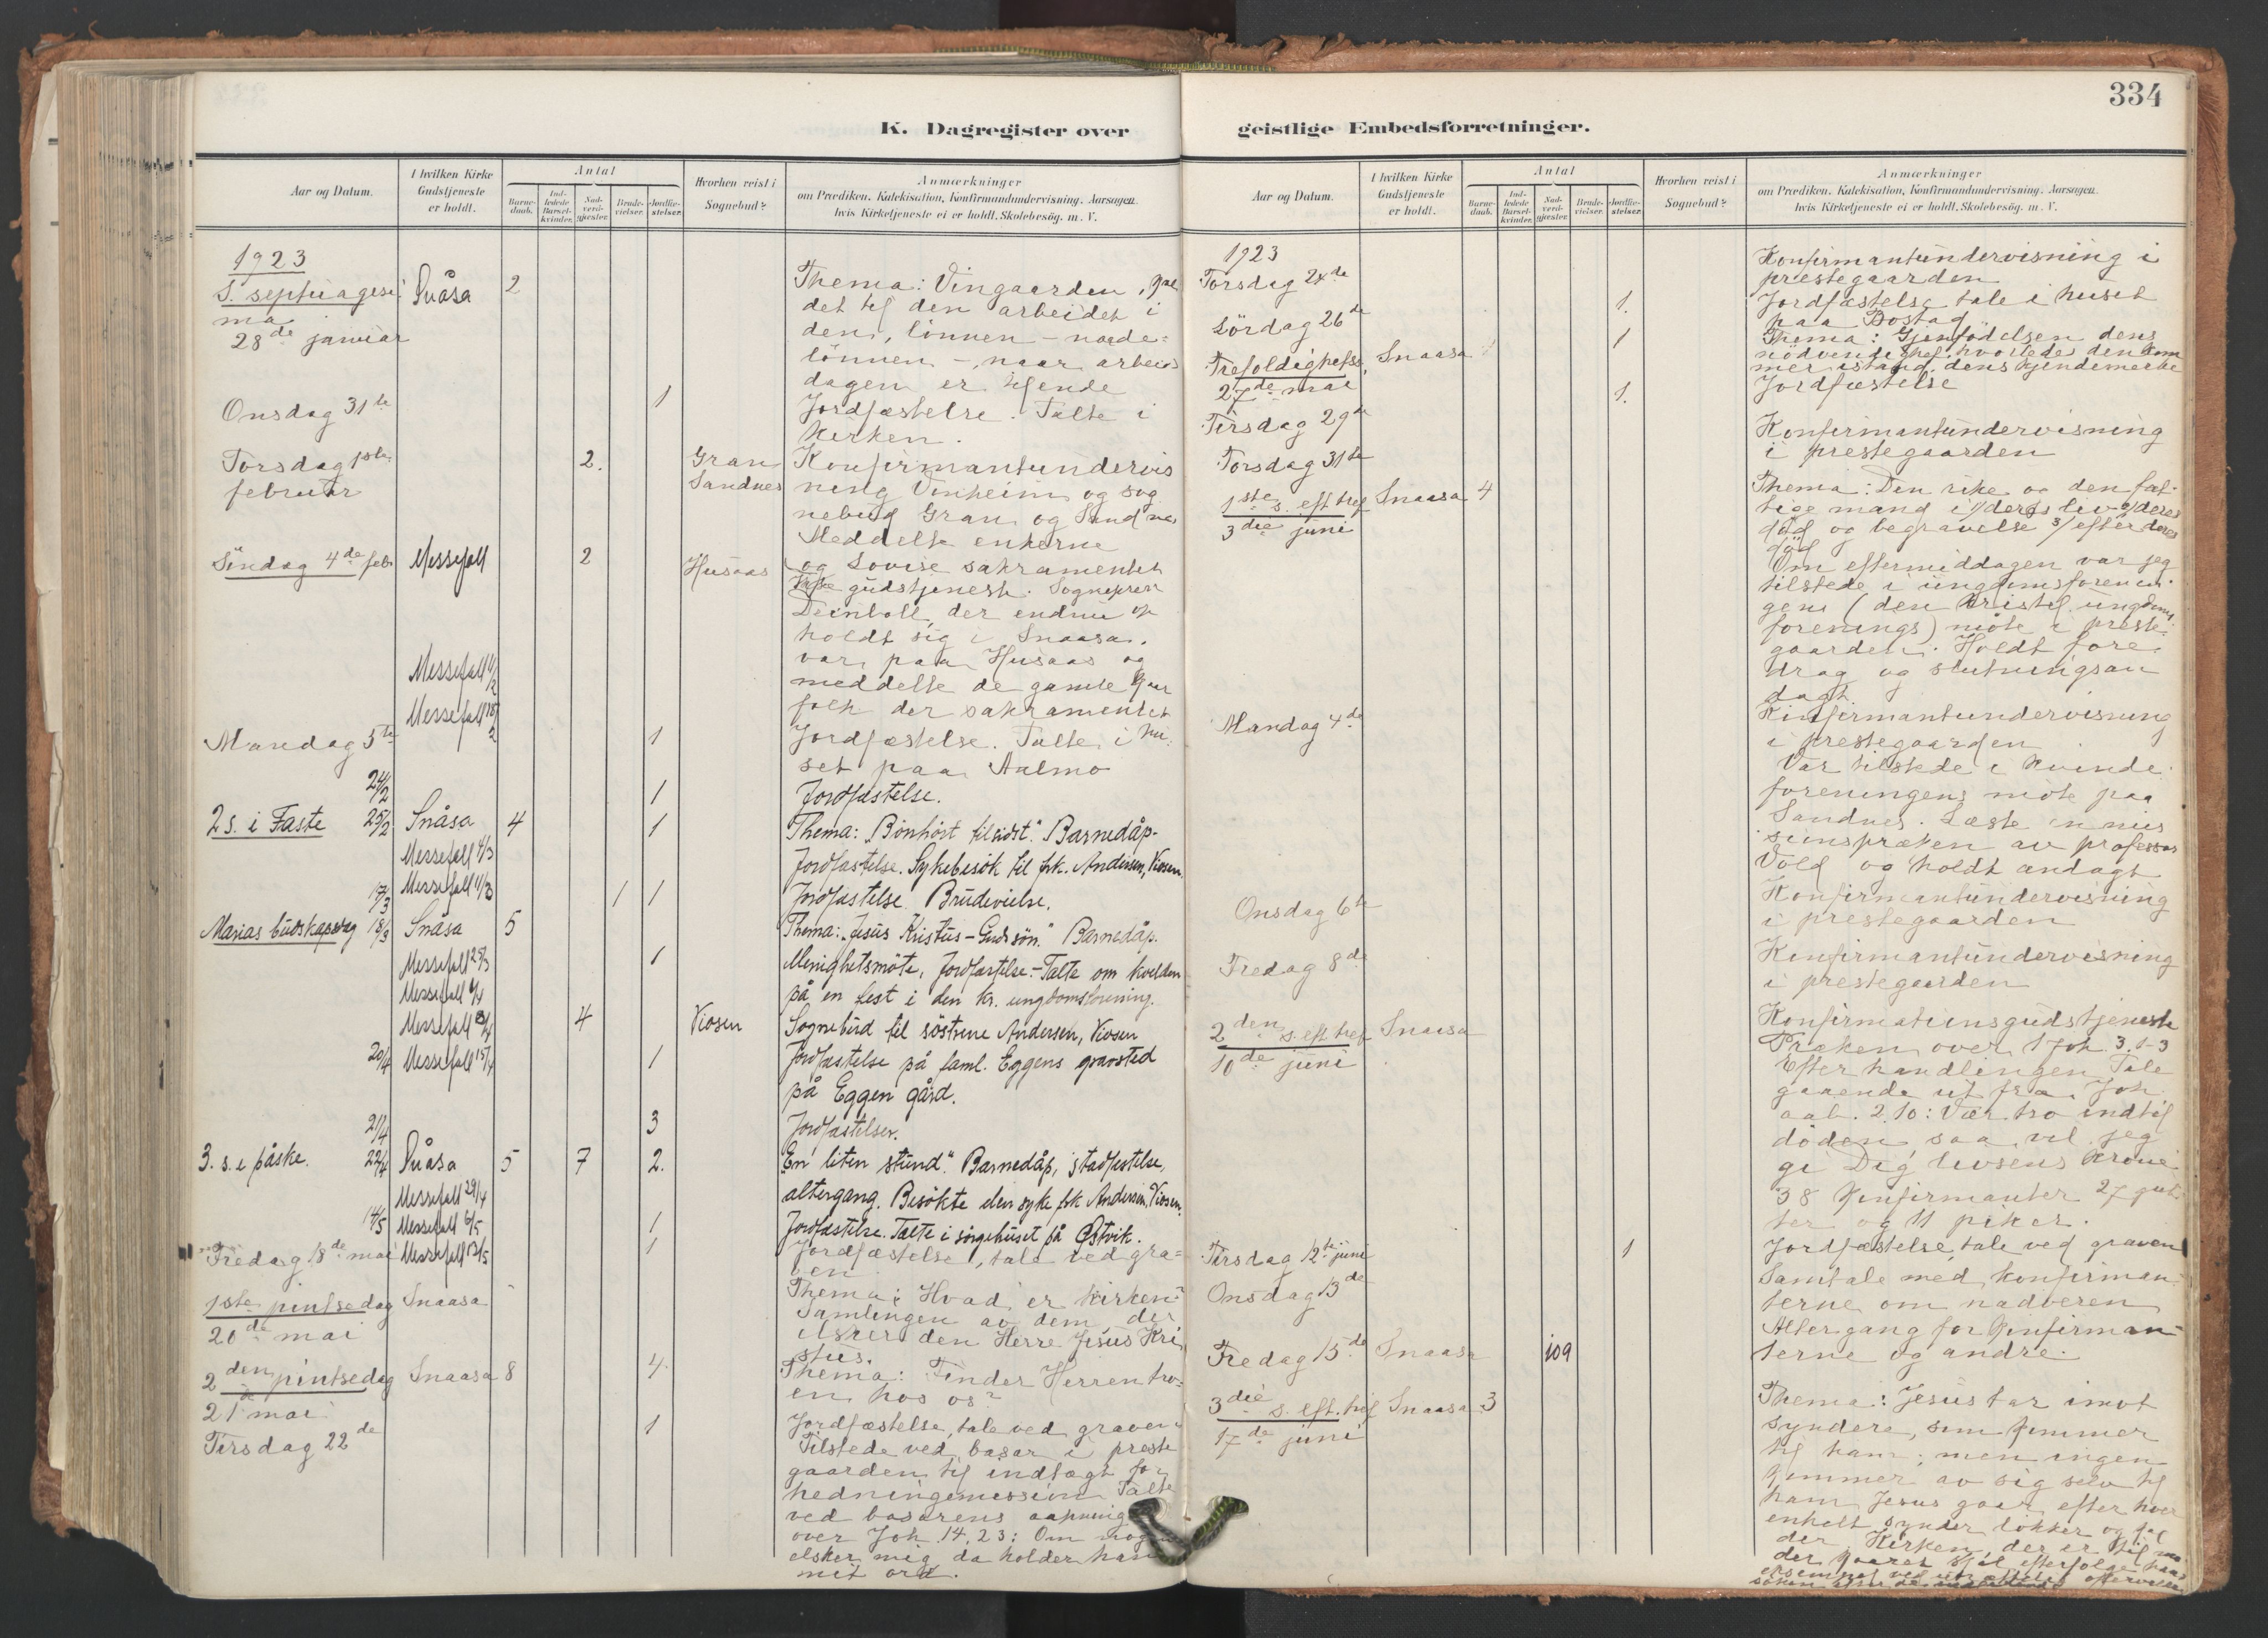 334
K. Dagregister over
geistlige Embedsforretninger.
Aar og Datum.
I hvilken Kirke Gudstjeneste er holdt.
Antal
Barne-daab.
Ind-ledede Barsel-kvinder.
Nad-verd-gjester.
Brude-vielser.
Jordfæ-stelser.
Hvorhen reist i Sognebud?
Anmærkninger
om Prædiken, Katekisation, Konfirmandundervisning. Aarsagen,
hvis Kirketjeneste ei er holdt, Skolebesög. m. V.
1923
S. septuagesi Snåsa 2 Thema: Vingaarden,
ma det til den arbeidet i
28de januar den, lönnen - naade-
lönnen - naar arbeids
dagen er tilende
Onsdag 31te 1 Jordfæstelse. Talte i
kirken.
Torsdag 1ste 2. Gran Konfirmantundervis
februar Sandnes ning Vinheim og sog
nebud Gran og Sandnes
Meddelte enkerne
Söndag 4de feb. Messefall 2 Husaas og Lovise sakramentet
gudstjeneste. Sogneprest
Deinboll, der endnu op
holdt sig i Snaasa.
var paa Husaas og
Messefall 11/2 meddelte de gamle
folk der sakramentet
Messefall 18/2
Mandag 5te 1 Jordfæstelse. Talte i hu-
set paa Aalmo
24/2 1 Jordfæstelse.
2 s. i Faste 25/2 Snåsa 4 1 Thema: "Bönhört tilsidst". Barnedåp.
Messefall 4/3 Jordfæstelse. Sykebesök til frk. Andersen, Viosen.
17/3 Messefall 11/3 1 1 Jordfæstelse. Brudevielse.
Marias budskapsdag 18/3 Snåsa 5 Thema: "Jesus Kristus - Guds sön." Barnedåp.
Messefall 25/3 1 Menighetsmöte, Jordfæstelse. - Talte om kvelden
Messefall på en fest i den kr. ungdomsforening.
Messefall 8/4 4 Viosen Sognebud til söstrene Andersen, Viosen
20/4 Messefall 15/4 1 Jordfæstelse på faml. Eggens gravsted
på Eggen gård.
21/4 3 Jordfæstelser.
3. s. e påske. 22/4 Snåsa 5 7 2. "En liten stund". Barnedåp, jordfæstelse,
Messefall 29/4 altergang. Besökte den syke frk Andersen, Viosen.
14/5 Messefall 6/5 1 Jordfæstelse. Talte i sörgehuset på Östvik.
Fredag 18de mai Messefall 13/5 1 Jordfæstelse, tale ved gra-
ven
1ste pintsedag Snaasa Thema: Hvad er kirken?
20de mai Samlingen av dem, der
elsker den Herre Jesus Kri
stus.
2den pintsedag Snaasa 8 4. Thema: Finder Herren tro-
21 mai en hos os?
Tirsdag 22de 1 Jordfæstelse, tale ved graven
Tilstede ved basar i preste
gaarden til indtægt for
hedningemission Talte
ved basarens aapning
over Joh. 14.23: Om nogen
elsker mig, da holder han
mit ord.
Aar og Datum.
I hvilken Kirke Gudstjeneste er holdt.
Antal
Barne-daab.
Ind-ledede Barsel-kvinder.
Nad-verd-gjester.
Brude-vielser.
Jordfæ-stelser.
Hvorhen reist i Sognebud?
Anmærkninger
om Prædiken, Katekisation, Konfirmandundervisning. Aarsagen,
hvis Kirketjeneste ei er holdt, Skolebesög. m. V.
1923
Torsdag 24de Konfirmantundervisning i
prestegaarden
Lördag 26de 1. Jordfæstelse tale i huset
paa Bostad
Trefoldighetss. Snaasa 1 Thema: Gjenfödelsen dens
27de mai nödvendighet, hvorledes den kom
mer istand, dens kjendemerke
1. Jordfæstelse
Tirsdag 29de Konfirmantundervisning
Torsdag 31te i prestegaarden
1ste s. eft tref Snaasa 4 Thema: Den rike og den fat-
3die juni tige mand i 1/ deres liv 2/ deres
död og begravelse 3/ efter deres
död
Om eftermiddagen var jeg
tilstede i ungdomsforenin-
gens (den kristel. ungdoms
forenings) möte i preste-
gaarden. Holdt fore
drag og slutningsan
dagt.
Mandag 4de Konfirmantundervisning
i prestegaarden
Var tilstede i kvinde
foreningens möte paa
Sandnes. Læste en mis
sionspræken av professor
Vold og holdt andagt
Onsdag 6te Konfirmantundervisning
i prestegaarden
Fredag 8de Konfirmantundervisning
i prestegaarden
2den s. eft tref Snaasa Konfirmationsgudstjeneste
10de juni Præken over 1 Joh. 3.1-3
Efter handlingen Tale
gaaende ut fra Joh.
aab. 2.10: Vær tro indtil
döden saa vil jeg
gi Dig livsens krone
38 Konfirmanter 27 gut
ter og 11 piker.
Tirsdag 12te juni 1 Jordfæstelse, tale ved graven
Onsdag 13de Samtale med konfirman
terne om nadveren
Fredag 15de Snaasa 109 Altergang for Konfirman-
terne og andre.
3die s. eft. tref Snaasa 3 Thema: Jesus tar imot
17de juni syndere, som kommer
til ham; men ingen
kommer av sig selv til
ham Jesus gaar efter hver
enkelt synder lokker og
der. Kirken, der er